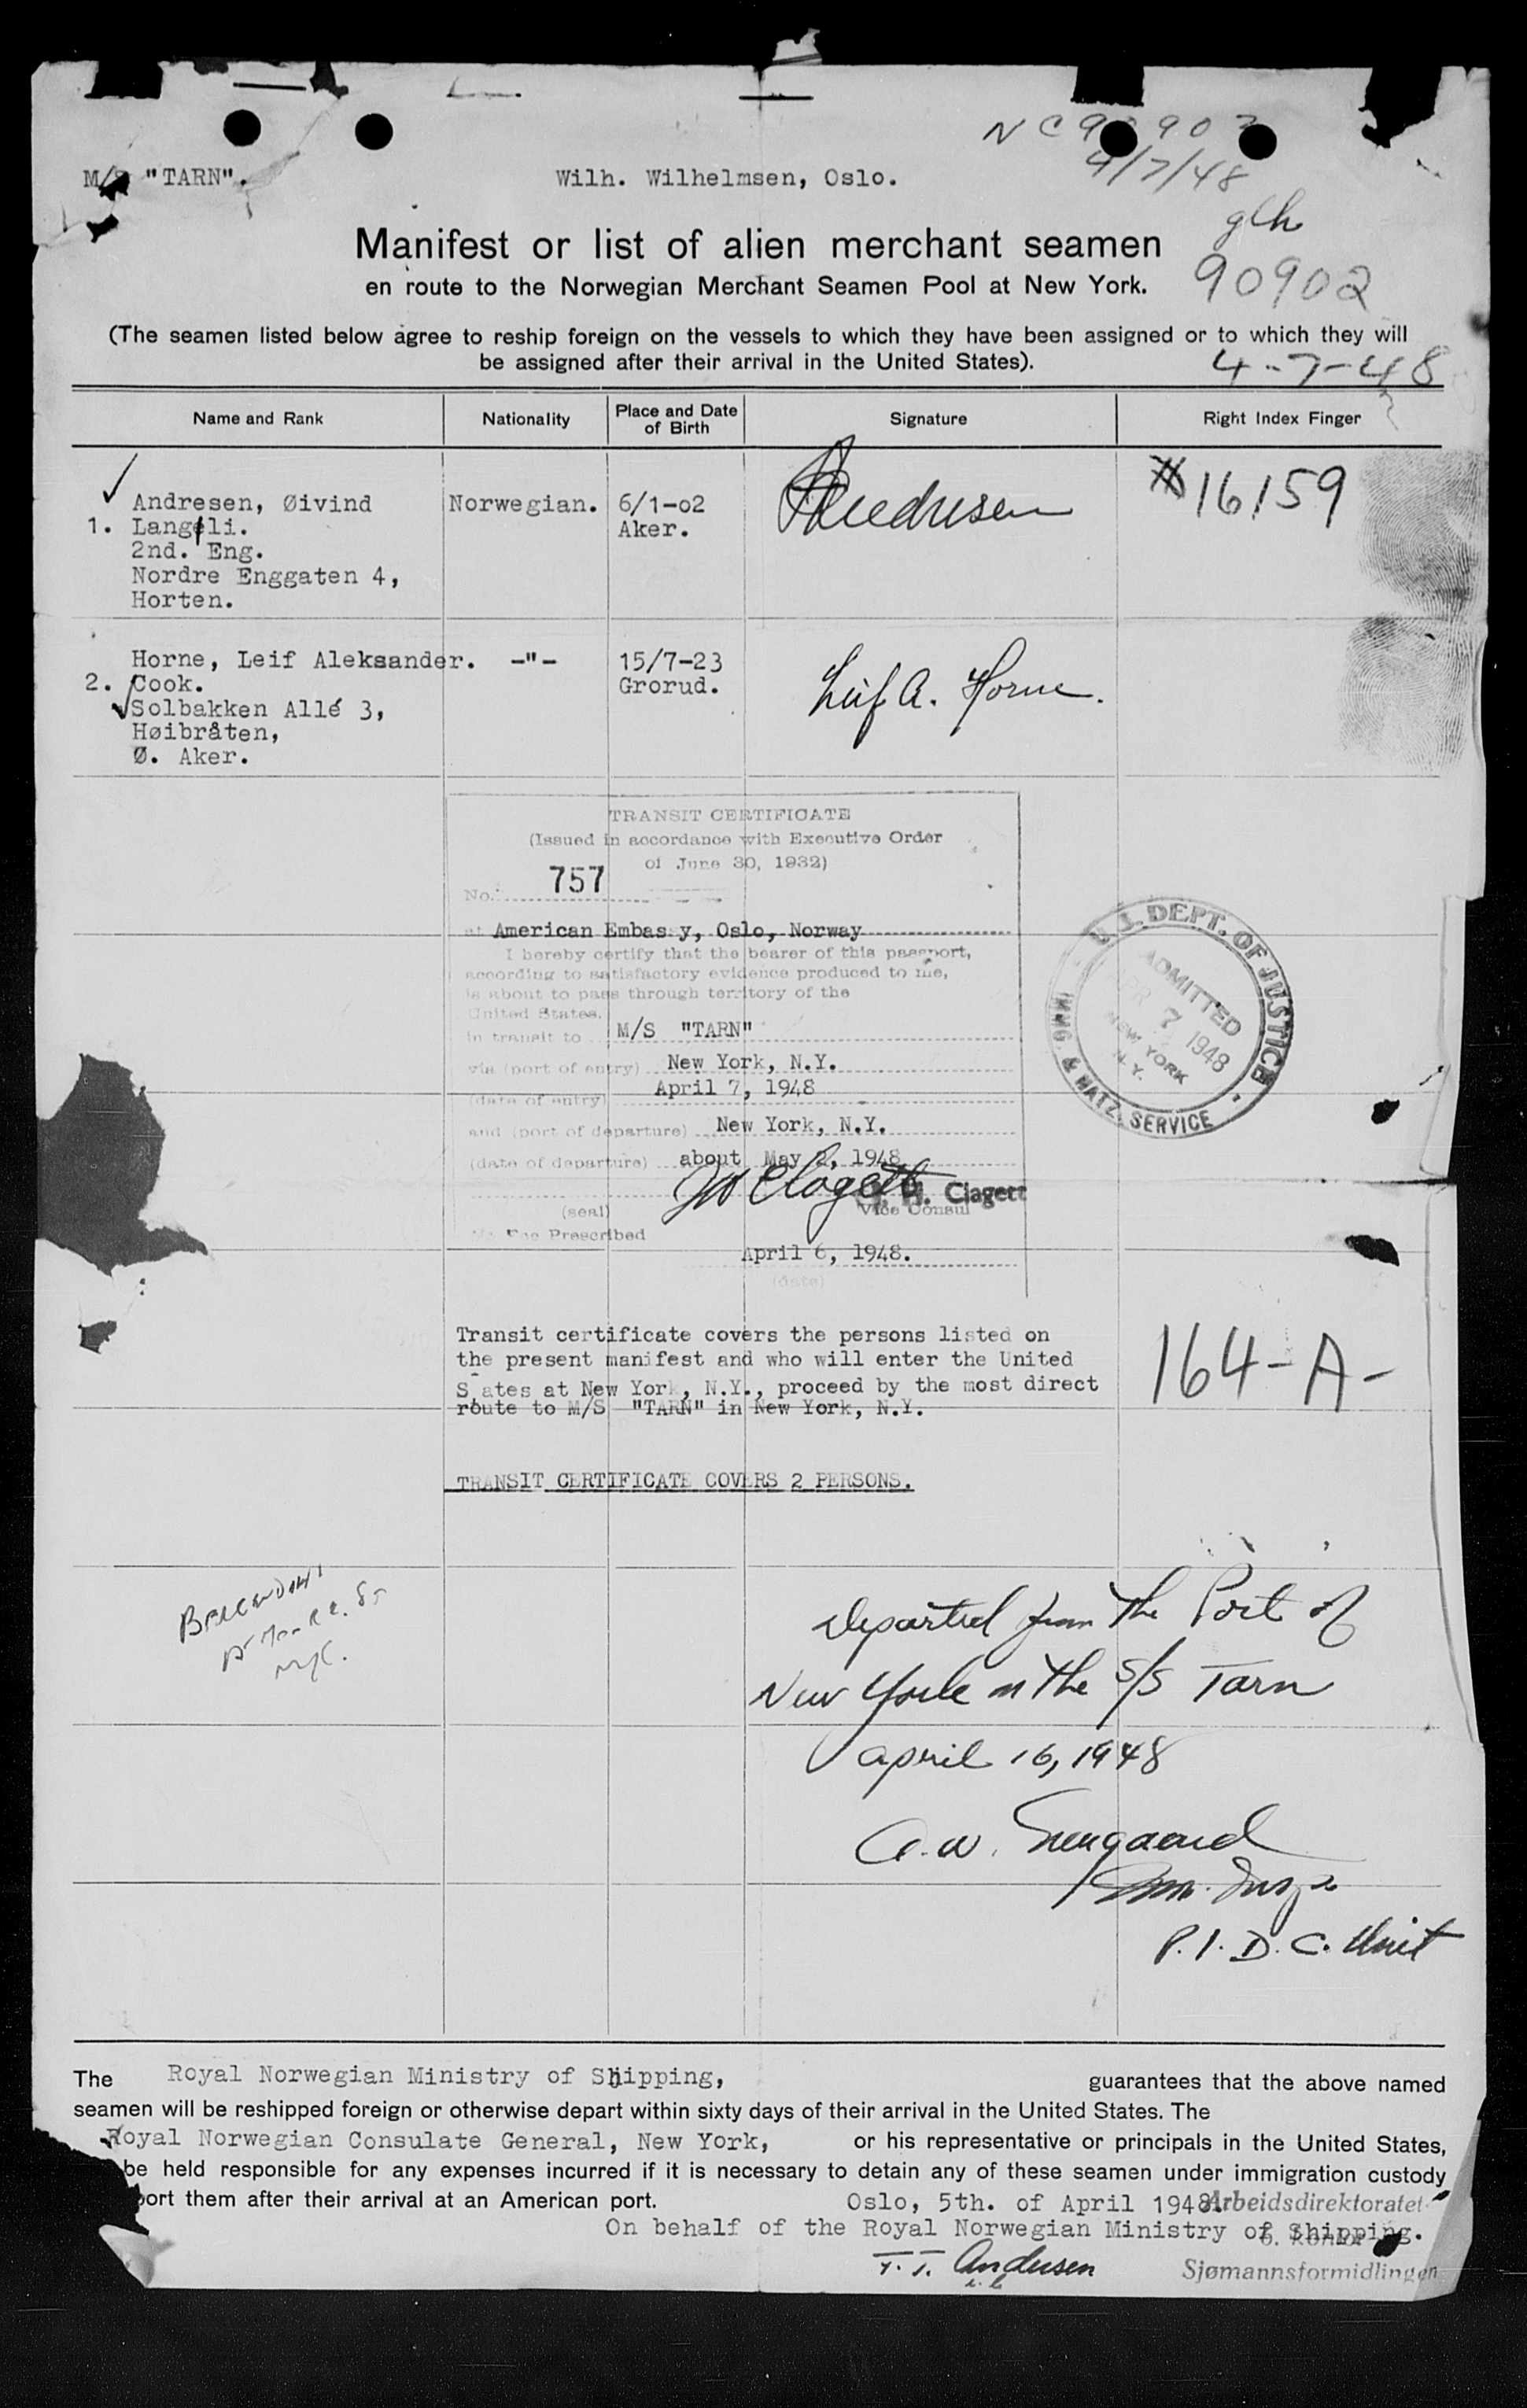 M/S "TARN".
Wilh. Wilhelmsen, Oslo.
4/7/48
glh
Manifest or list of alien merchant seamen
90902
en route to the Norwegian Merchant Seamen Pool at New York.
(The seamen listed below agree to reship foreign on the vessels to which they have been assigned or to which they will
be assigned after their arrival in the United States).
4-7-48
Name and Rank Nationality Place and Date of Birth Signature Right Index Finger
1. Andresen, Øivind Norwegian. 6/1-02
Aker.
16159
2nd. Eng.
Nordre Enggaten 4,
Horten.
Horne, Leif Aleksander. -"- 15/7-23
2. Cook. Grorud. Leif A. Horne.
Solbakken Allé 3,
Høibråten,
Ø. Aker.
TRANSIT CERTIFICATE
(Issued in accordance with Executive Order
of June 30, 1932)
No. 757
at American Embas y, Oslo, Norway
I hereby certify that the bearer of this passport,
according to satisfactory evidence produced to me,
is about to pass through territory of the
United States.
in transit to M/S "TARN"
via (port of entry) New York, N.Y.
(date of entry) April 7, 1948
and (port of departure) New York, N.Y.
(date of departure) about May 2, 1948
H. Clagett
(seal) Vice Consul
No Fee Prescribed
April 6, 1948.
(date)
U. S. DEPT. OF JUSTICE
IMMIG. & NATZ. SERVICE
ADMITTED
APR 7 1948
NEW YORK
N.Y.
Transit certificate covers the persons listed on
the present manifest and who will enter the United
S ates at New York, N.Y., proceed by the most direct
route to M/S "TARN" in New York, N.Y.
164-A-
TRANSIT CERTIFICATE COVERS 2 PERSONS.
Departed from the Port of
New York on the S/S Tarn
april 16, 1948
Imm. Insp.
P.I.D.C. Unit
The Royal Norwegian Ministry of Shipping, guarantees that the above named
seamen will be reshipped foreign or otherwise depart within sixty days of their arrival in the United States. The
Royal Norwegian Consulate General, New York, or his representative or principals in the United States,
be held responsible for any expenses incurred if it is necessary to detain any of these seamen under immigration custody
port them after their arrival at an American port.
Oslo, 5th. of April 1948. Arbeidsdirektoratet
On behalf of the Royal Norwegian Ministry of Shipping.
Sjømannsformidlingen